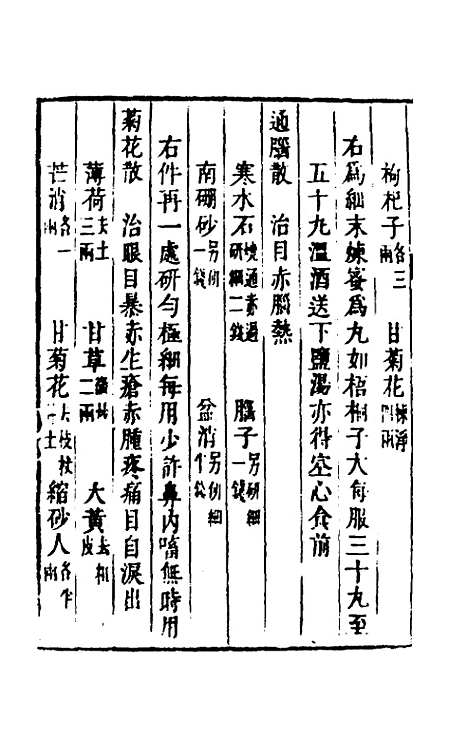 枸杞子各三兩 甘菊花揀淨四兩
右為細末煉蜜為丸如梧桐子大每服三十丸至
五十丸溫酒送下鹽湯亦得空心食前
通腦散 治目赤腦熱
寒水石燒通赤過研細二錢 腦子另研細一錢
南硼砂另研一錢 盆消另研細半錢
右件再一處研勻極細每用少許鼻內嗜無時用
菊花散 治眼目暴赤生瘡赤腫疼痛目自淚出
薄荷去土三兩 甘草二兩 大黃去粗皮
芒消各一兩 甘菊花去枝杖土 縮砂人各半兩